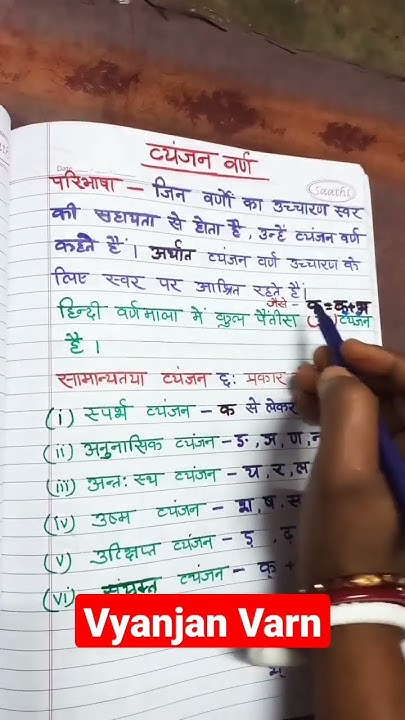 Saathi
व्यंजन वर्ण
परिभाषा – जिन वर्णों का उच्चारण स्वर
की सहायता से होता है, उन्हें व्यंजन वर्ण
कहते हैं। अर्थात व्यंजन वर्ण उच्चारण के
लिए स्वर पर आश्रित रहते हैं।
जैसे - क = क् + अ
हिन्दी वर्णमाला में कुल पैंतीस व्यंजन
है।
सामान्यतया व्यंजन छ: प्रकार
(i) स्पर्श व्यंजन – क से लेकर
(ii) अनुनासिक व्यंजन - ङ, ञ, ण, न
(iii) अन्त: स्थ व्यंजन – य, र, ल
(iv) उष्म व्यंजन – श, ष, स
(v) उत्क्षिप्त व्यंजन – ड़, ढ़
(vi) संयुक्त व्यंजन – क् +
Vyanjan Varn